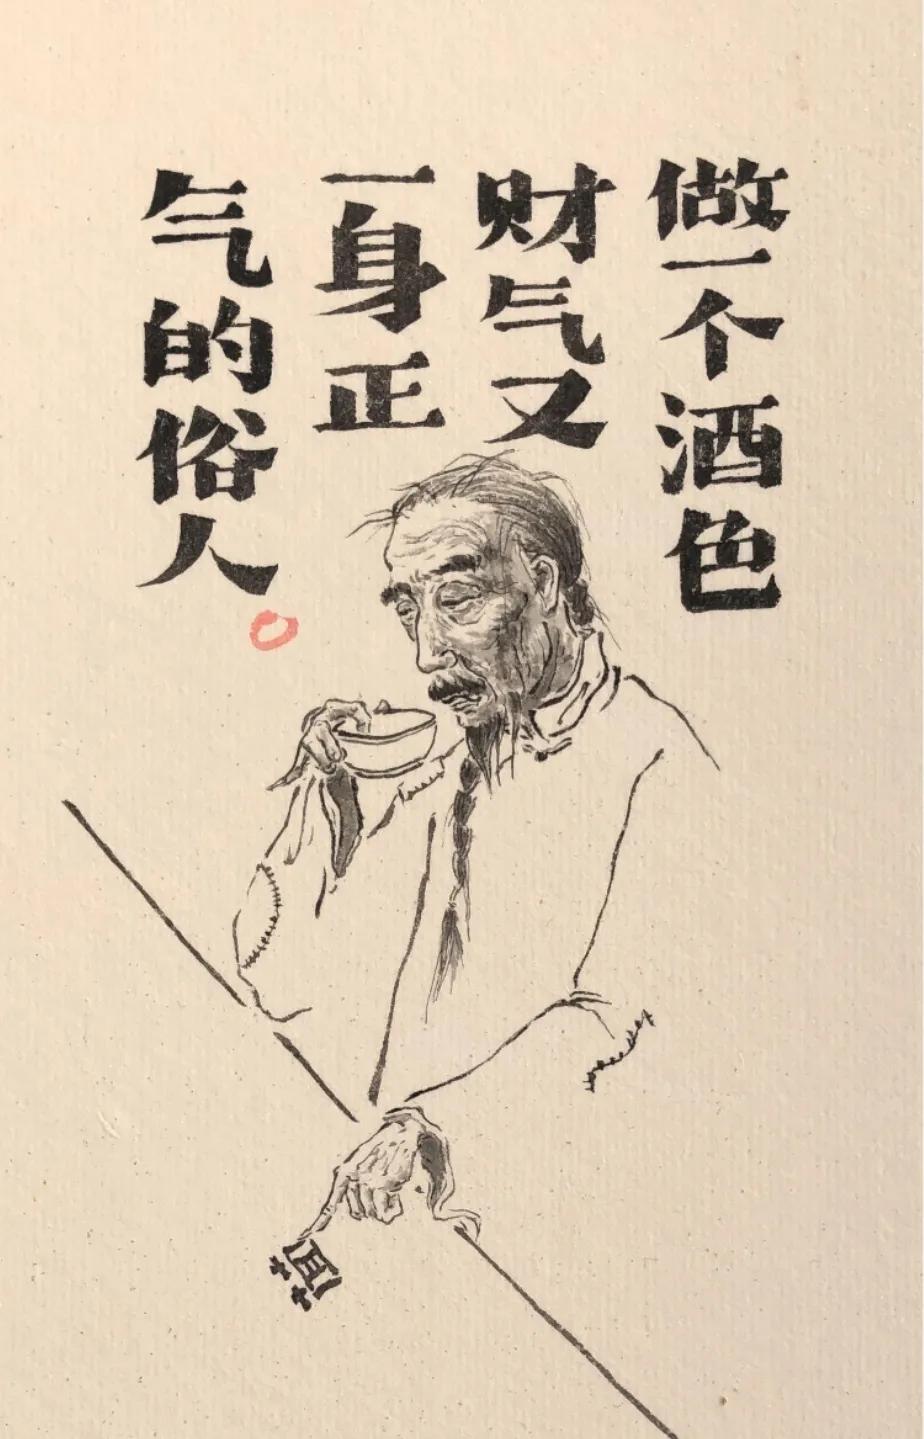 做一个酒色
财气又
一身正
气的俗人。